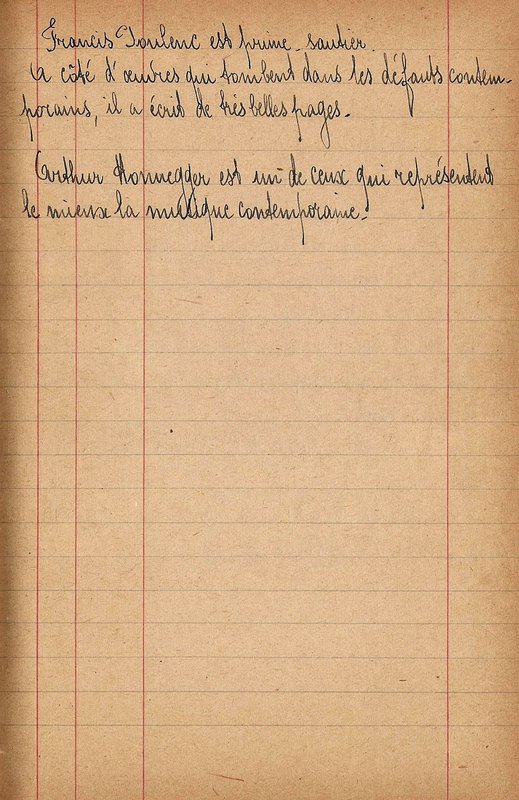 Francis Poulenc est prime-sautier.
A côté d'œuvres qui tombent dans les défauts contem-
porains, il a écrit de très belles pages.
Arthur Honnegger est un de ceux qui représentent
le mieux la musique contemporaine.